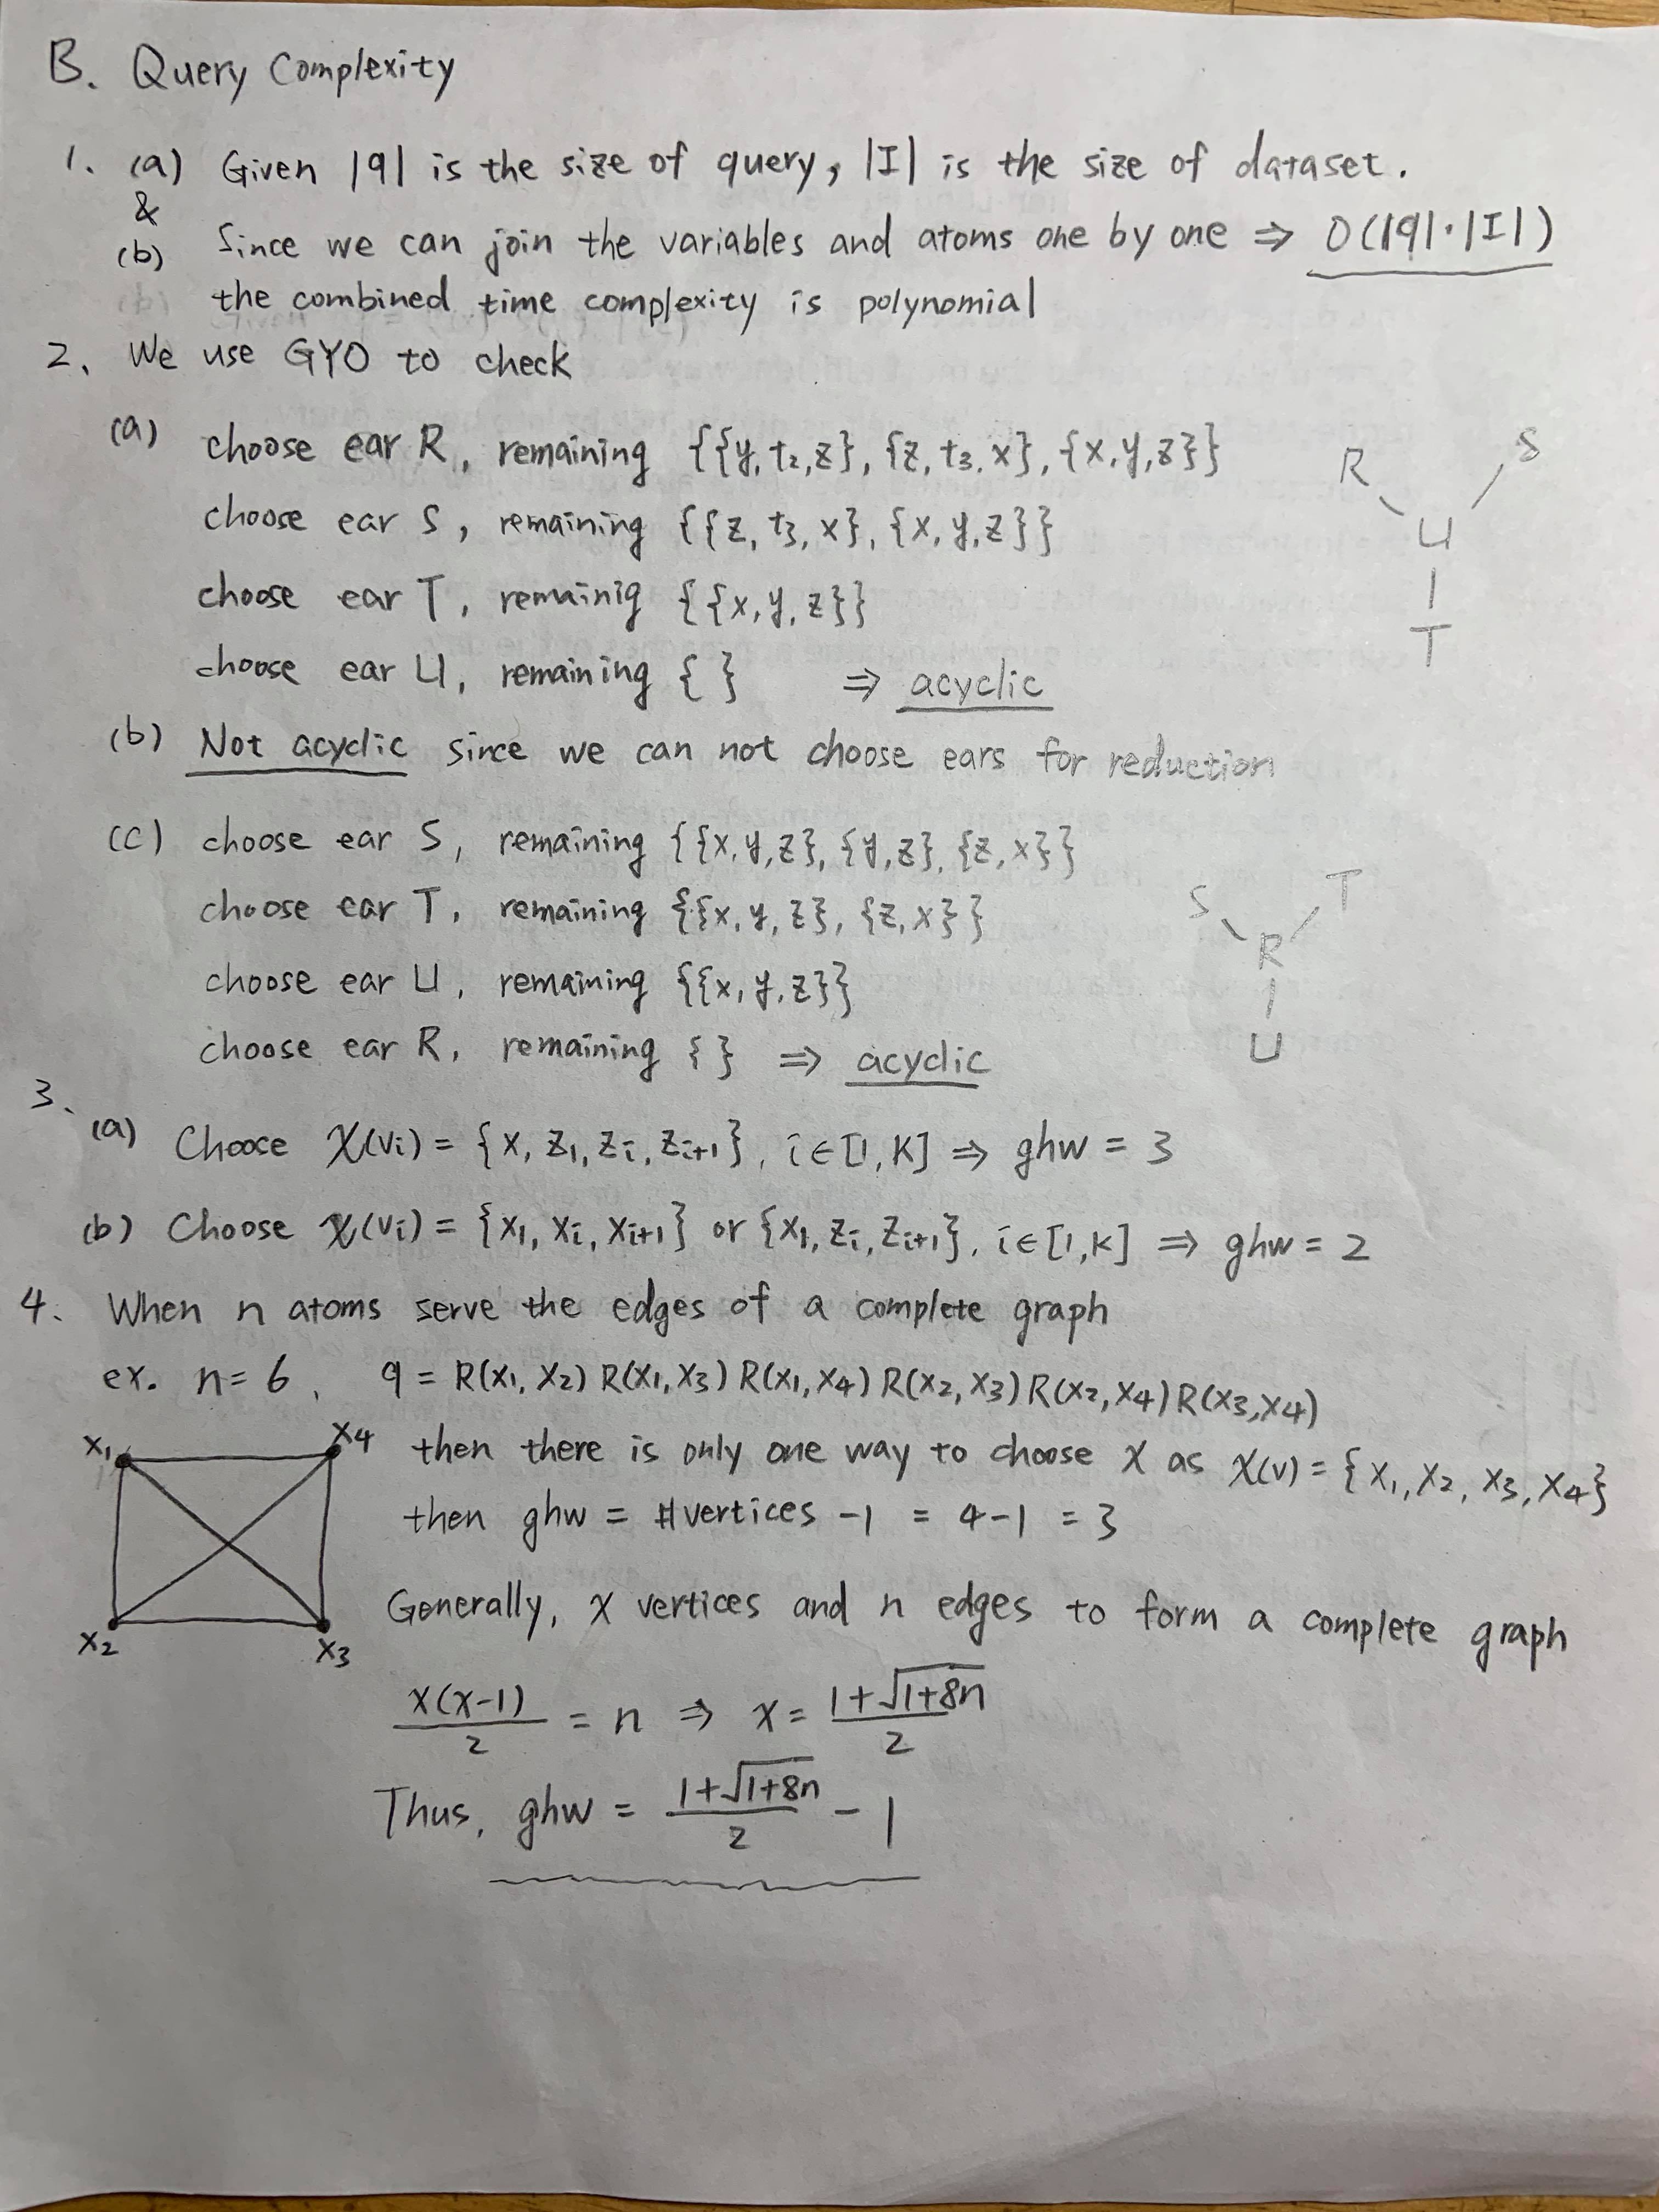 B. Query Complexity
1. (a) Given |q| is the size of query, |I| is the size of dataset.
&
(b) Since we can join the variables and atoms one by one ⇒ O(|q|·|I|)
the combined time complexity is polynomial
2. We use GYO to check
(a) choose ear R, remaining {{y,t₂,z}, {z,t₃,x}, {x,y,z}}
choose ear S, remaining {{z,t₃,x}, {x,y,z}}
choose ear T, remainig {{x,y,z}}
choose ear U, remaining { } ⇒ acyclic
R S
U
T
(b) Not acyclic since we can not choose ears for reduction
(c) choose ear S, remaining {{x,y,z}, {y,z}, {z,x}}
choose ear T, remaining {{x,y,z}, {z,x}}
choose ear U, remaining {{x,y,z}}
choose ear R, remaining { } ⇒ acyclic
S T
R
U
3.
(a) Chooce χ(vi) = {x, z₁, zi, zi+1}, i∈[1,K] ⇒ ghw = 3
(b) Choose χ(vi) = {x₁, xi, xi+1} or {x₁, zi, zi+1}, i∈[1,K] ⇒ ghw = 2
4. When n atoms serve the edges of a complete graph
ex. n=6, q = R(x₁,x₂) R(x₁,x₃) R(x₁,x₄) R(x₂,x₃) R(x₂,x₄) R(x₃,x₄)
x₁ x₄
x₂ x₃
then there is only one way to choose χ as χ(v) = {x₁, x₂, x₃, x₄}
then ghw = #vertices -1 = 4-1 = 3
Generally, x vertices and n edges to form a complete graph
x(x-1)/2 = n ⇒ x = (1+√(1+8n))/2
Thus, ghw = (1+√(1+8n))/2 - 1